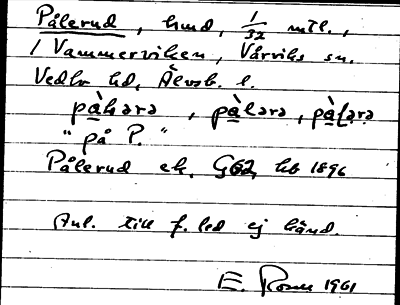 Pålerud, hmd, 1/32 mtl.,
i Vammerviken, Vårviks sn.
Vedbo hd, Älvsb. l.
pàlərə, pàlərə, pàlərə
"på P."
Pålerud ek. G62, hb 1896
Anl. till f. led ej känd.
E. Rosen 1961